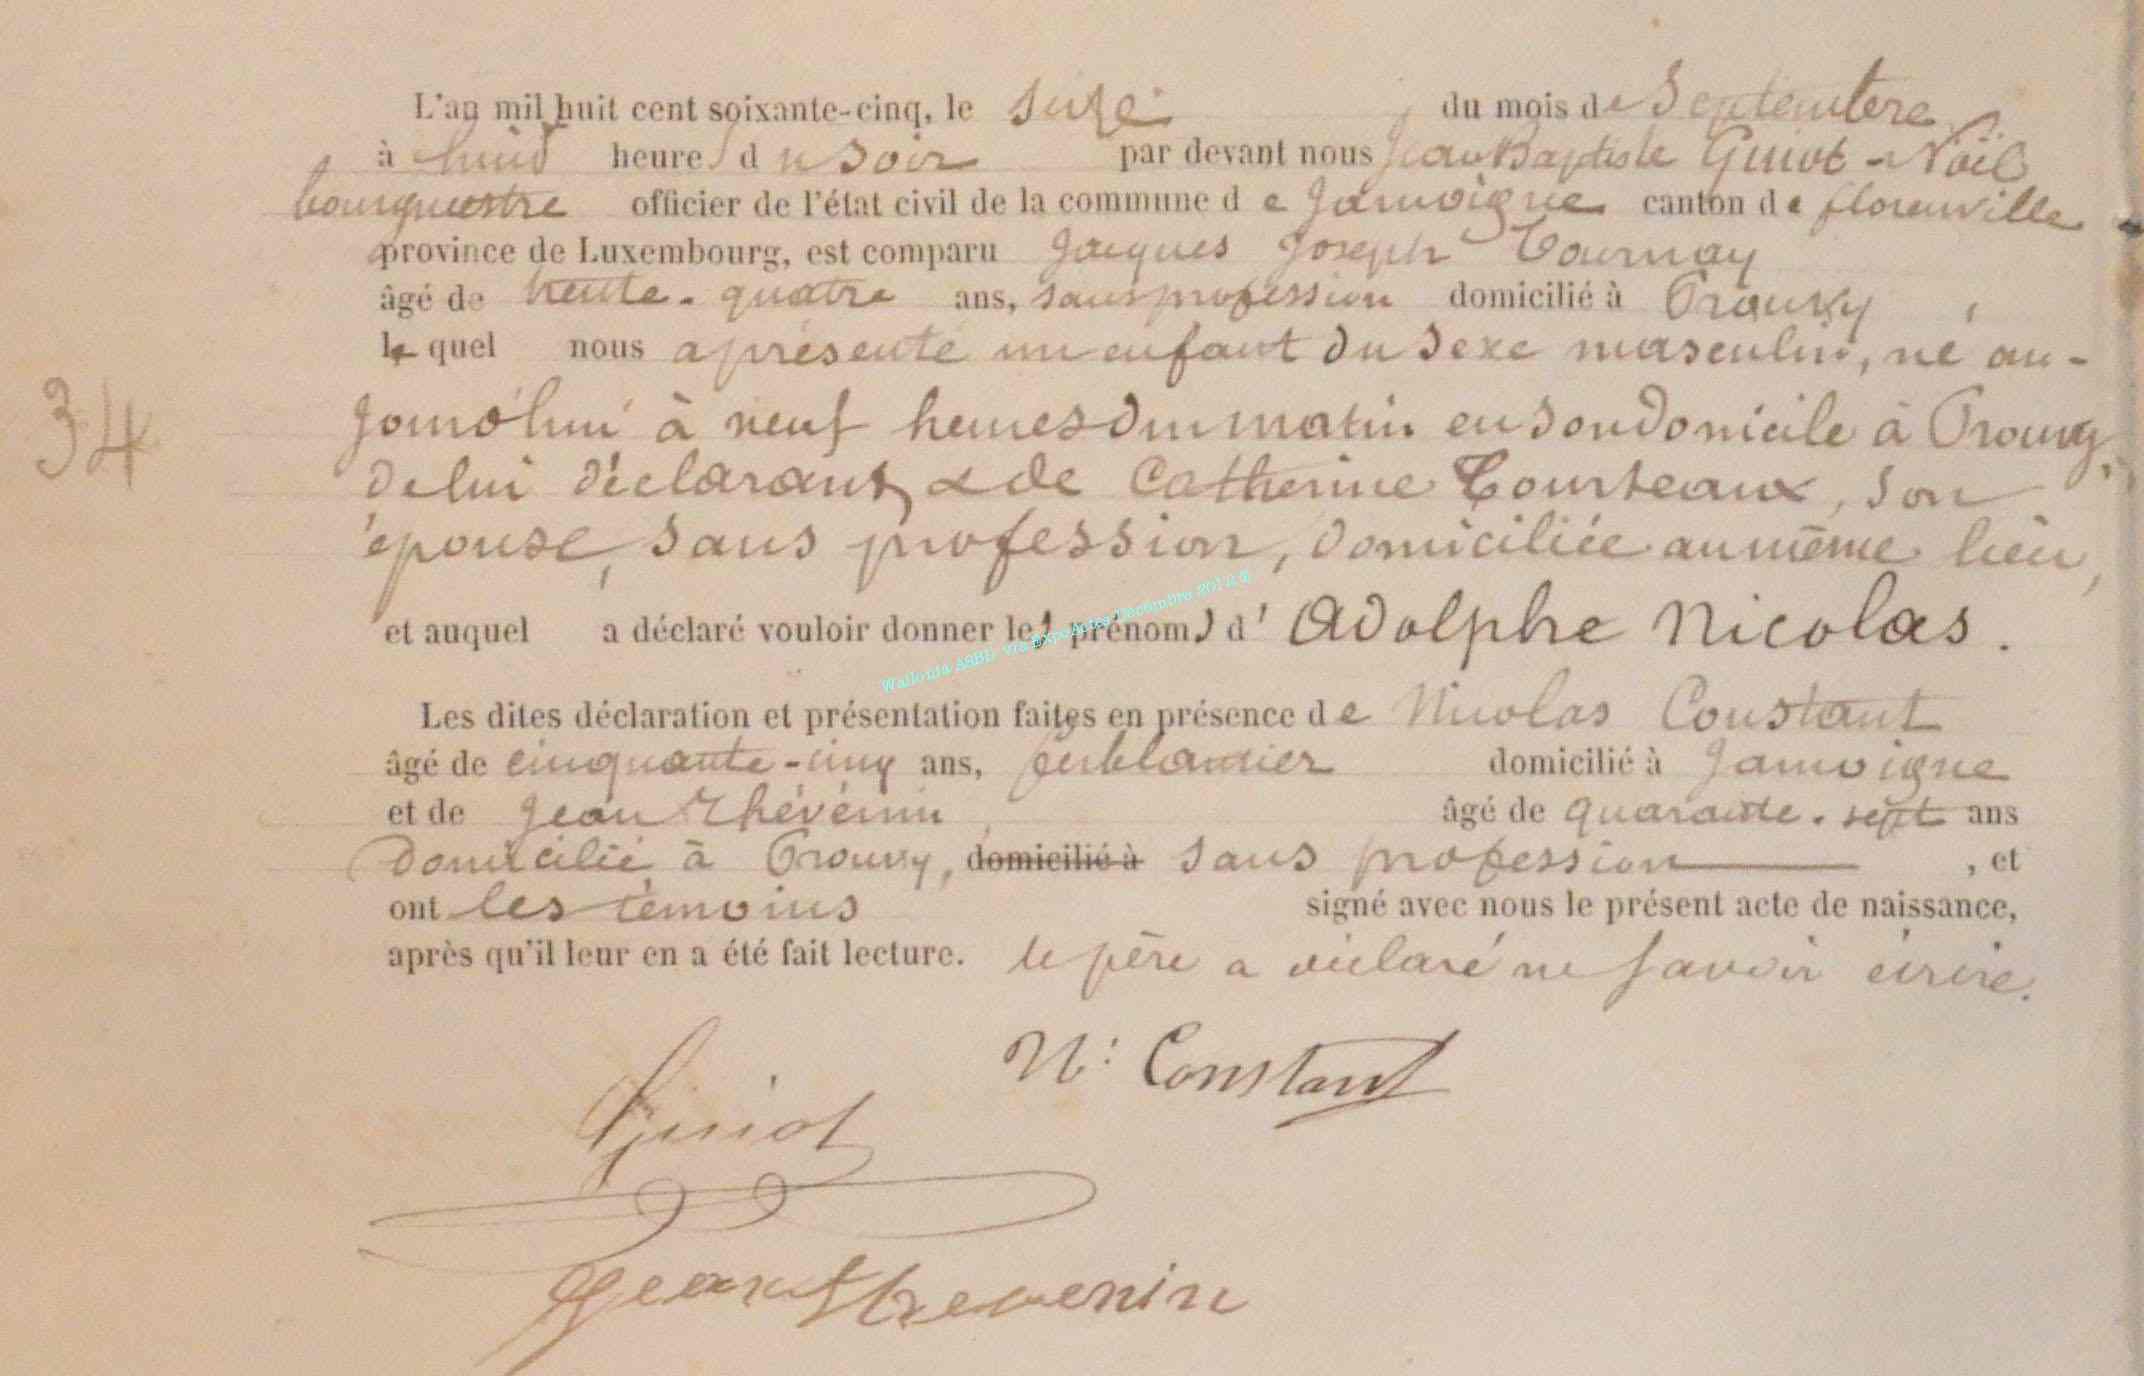 L'an mil huit cent soixante-cinq, le seize du mois de Septembre
à huit heures du soir par devant nous Jean Baptiste Guiot-Noël
bourgmestre officier de l'état civil de la commune de Jamoigne canton de florenville
province de Luxembourg, est comparu Jacques Joseph Tournay
âgé de trente-quatre ans, sans profession domicilié à Prouvy,
lequel nous a présenté un enfant du sexe masculin, né au-
jourd'hui à neuf heures du matin en son domicile à Prouvy,
34
de lui déclarant, & de Catherine Courteaux, son
épouse, sans profession, domiciliée au même lieu,
et auquel a déclaré vouloir donner les prénoms d'Adolphe Nicolas.
Wallonia ASBL via ExpoActes Décembre 2012 ©
Les dites déclaration et présentation faites en présence de Nicolas Constant
âgé de cinquante-cinq ans, ferblantier domicilié à Jamoigne
et de Jean Thévénin, âgé de quarante-sept ans
domicilié à Prouvy, domicilié à sans profession, et
ont les témoins signé avec nous le présent acte de naissance,
après qu'il leur en a été fait lecture. le père a déclaré ne savoir écrire.
N: Constant
Guiot
Jean Thevenin